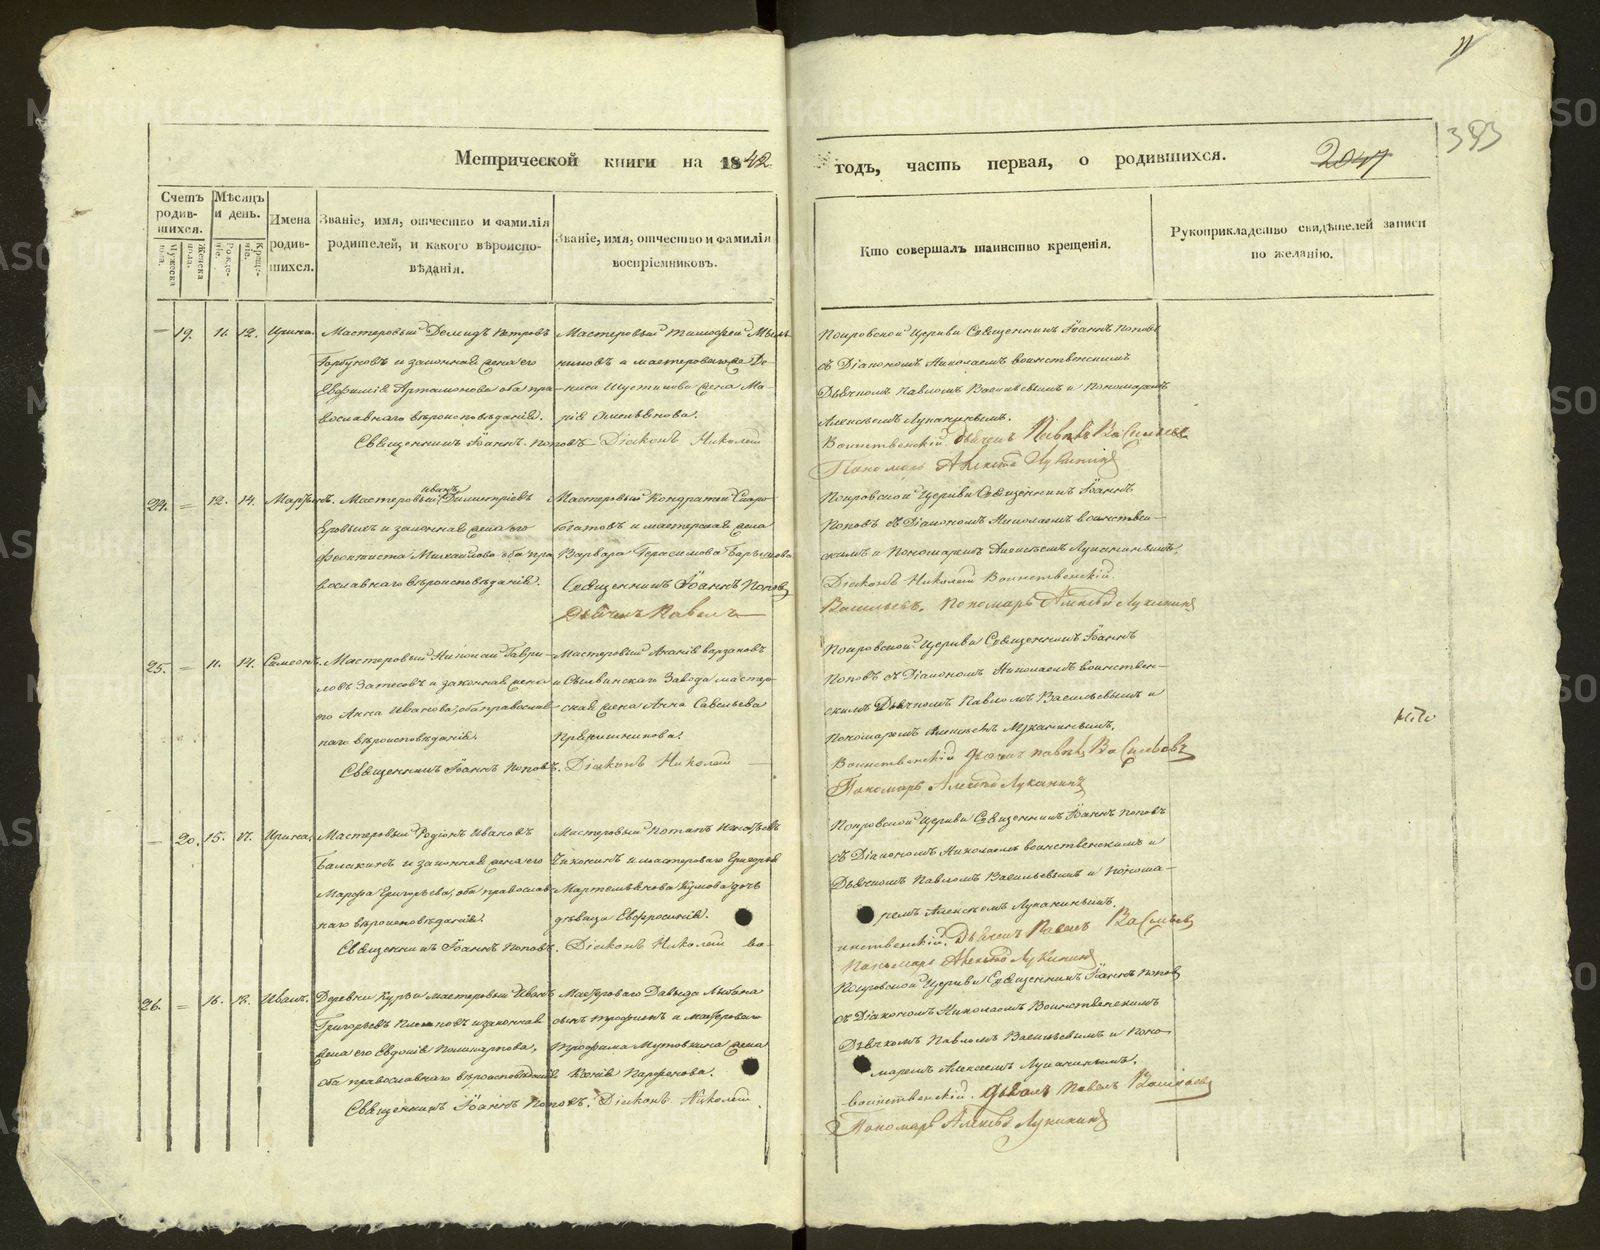 383
2047
Метрической книги на 1842
годъ, часть первая, о родившихся.
Счетъ родив-шихся.
Мужеска пола.
Женска пола.
Мѣсяцъ и день.
Рожде-нiе.
Креще-нiе.
Имена родив-шихся.
Званiе, имя, отчество и фамилiя
родителей, и какого вѣроиспо-
вѣданiя.
Званiе, имя, отчество и фамилiя
воспрiемниковъ.
Кто совершалъ таинство крещенiя.
Рукоприкладство свидѣтелей записи
по желанiю.
— 19. 11. 12. Ирина.
Мастеровый Демидъ Петровъ
Горбуновъ и законная жена его
Евфимiя Артамонова оба пра-
вославнаго вѣроисповѣданiя.
Мастеровый Тимофей Мыль-
никовъ и мастероваго Де-
ниса Шустикова жена Ма-
рiя
Священникъ Iоаннъ Поповъ Дiаконъ Николай
Покровской Церкви Священникъ Iоаннъ Поповъ
съ Дiакономъ Николаемъ воинственскимъ
Дьячкомъ Павломъ Васильевымъ и Пономаремъ
Алексѣемъ Луканинымъ.
Воинственскiй. Дьячекъ Павелъ Васильевъ
Пономарь Алексѣй Луканинъ
24. = 12. 14.
Мастеровый Иванъ Димитрiевъ
и законная жена его
Феоктиста Михайлова оба пра
вославнаго вѣроисповѣданiя.
Мастеровый Кондратiй Старо-
и мастерская жена
Варвара Герасимова
Священникъ Iоаннъ Поповъ
Дьячекъ Павелъ
Покровской Церкви Священникъ Iоаннъ
Поповъ съ Дiакономъ Николаемъ воинствен-
скимъ и Пономаремъ Алексѣемъ Луканинымъ.
Дiаконъ Николай Воинственскiй.
Васильевъ. Пономарь Алексѣй Луканинъ
25. = 11. 14. Симеонъ.
Мастеровый Николай Гаври-
ловъ Затесовъ и законная жена
его Анна Иванова, оба православ-
наго вѣроисповѣданiя.
Мастеровый Ананiя
и Сылвинскаго Завода мастер-
ская жена Анна Савельева
Священникъ Iоаннъ Поповъ. Дiаконъ Николай —
Покровской Церкви Священникъ Iоаннъ
Поповъ съ Дiакономъ Николаемъ воинствен-
скимъ Дьячкомъ Павломъ Васильевымъ и
Пономаремъ Алексѣемъ Луканинымъ.
Воинственскiй Дьячекъ Павелъ Васильевъ
Пономарь Алексѣй Луканинъ
— 20. 15. 17. Ирина.
Мастеровый Родiонъ Ивановъ
Балакинъ и законная жена его
Марфа Григорьева, оба православ-
наго вѣроисповѣданiя.
Мастеровый Потапъ
и мастероваго Григорья
Мартемьянова дочь
дѣвица Евфросинiя.
Священникъ Iоаннъ Поповъ. Дiаконъ Николай во-
Покровской Церкви Священникъ Iоаннъ Поповъ
съ Дiакономъ Николаемъ воинственскимъ и
Дьячкомъ Павломъ Васильевымъ и Понома-
ремъ Алексѣемъ Луканинымъ.
инственскiй. Дьячекъ Павелъ Васильевъ
Пономарь Алексѣй Луканинъ
26. = 16. 18. Иванъ.
Деревни Курьи мастеровый Иванъ
Григорьевъ и законная
жена его Евдокiя Поликарпова,
оба православнаго вѣроисповѣданiя
Мастероваго Давыда
сынъ Трофимъ и Мастероваго
Трофима Мутовкина жена
Ксенiя Парфенова.
Священникъ Iоаннъ Поповъ. Дiаконъ Николай
Покровской Церкви Священникъ Iоаннъ Поповъ
съ Дiакономъ Николаемъ Воинственскимъ
Дьячкомъ Павломъ Васильевымъ и Поно-
маремъ Алексѣемъ Луканинымъ.
воинственскiй. Дьячекъ Павелъ Васильевъ
Пономарь Алексѣй Луканинъ
METRIKI.GASO-URAL.RU